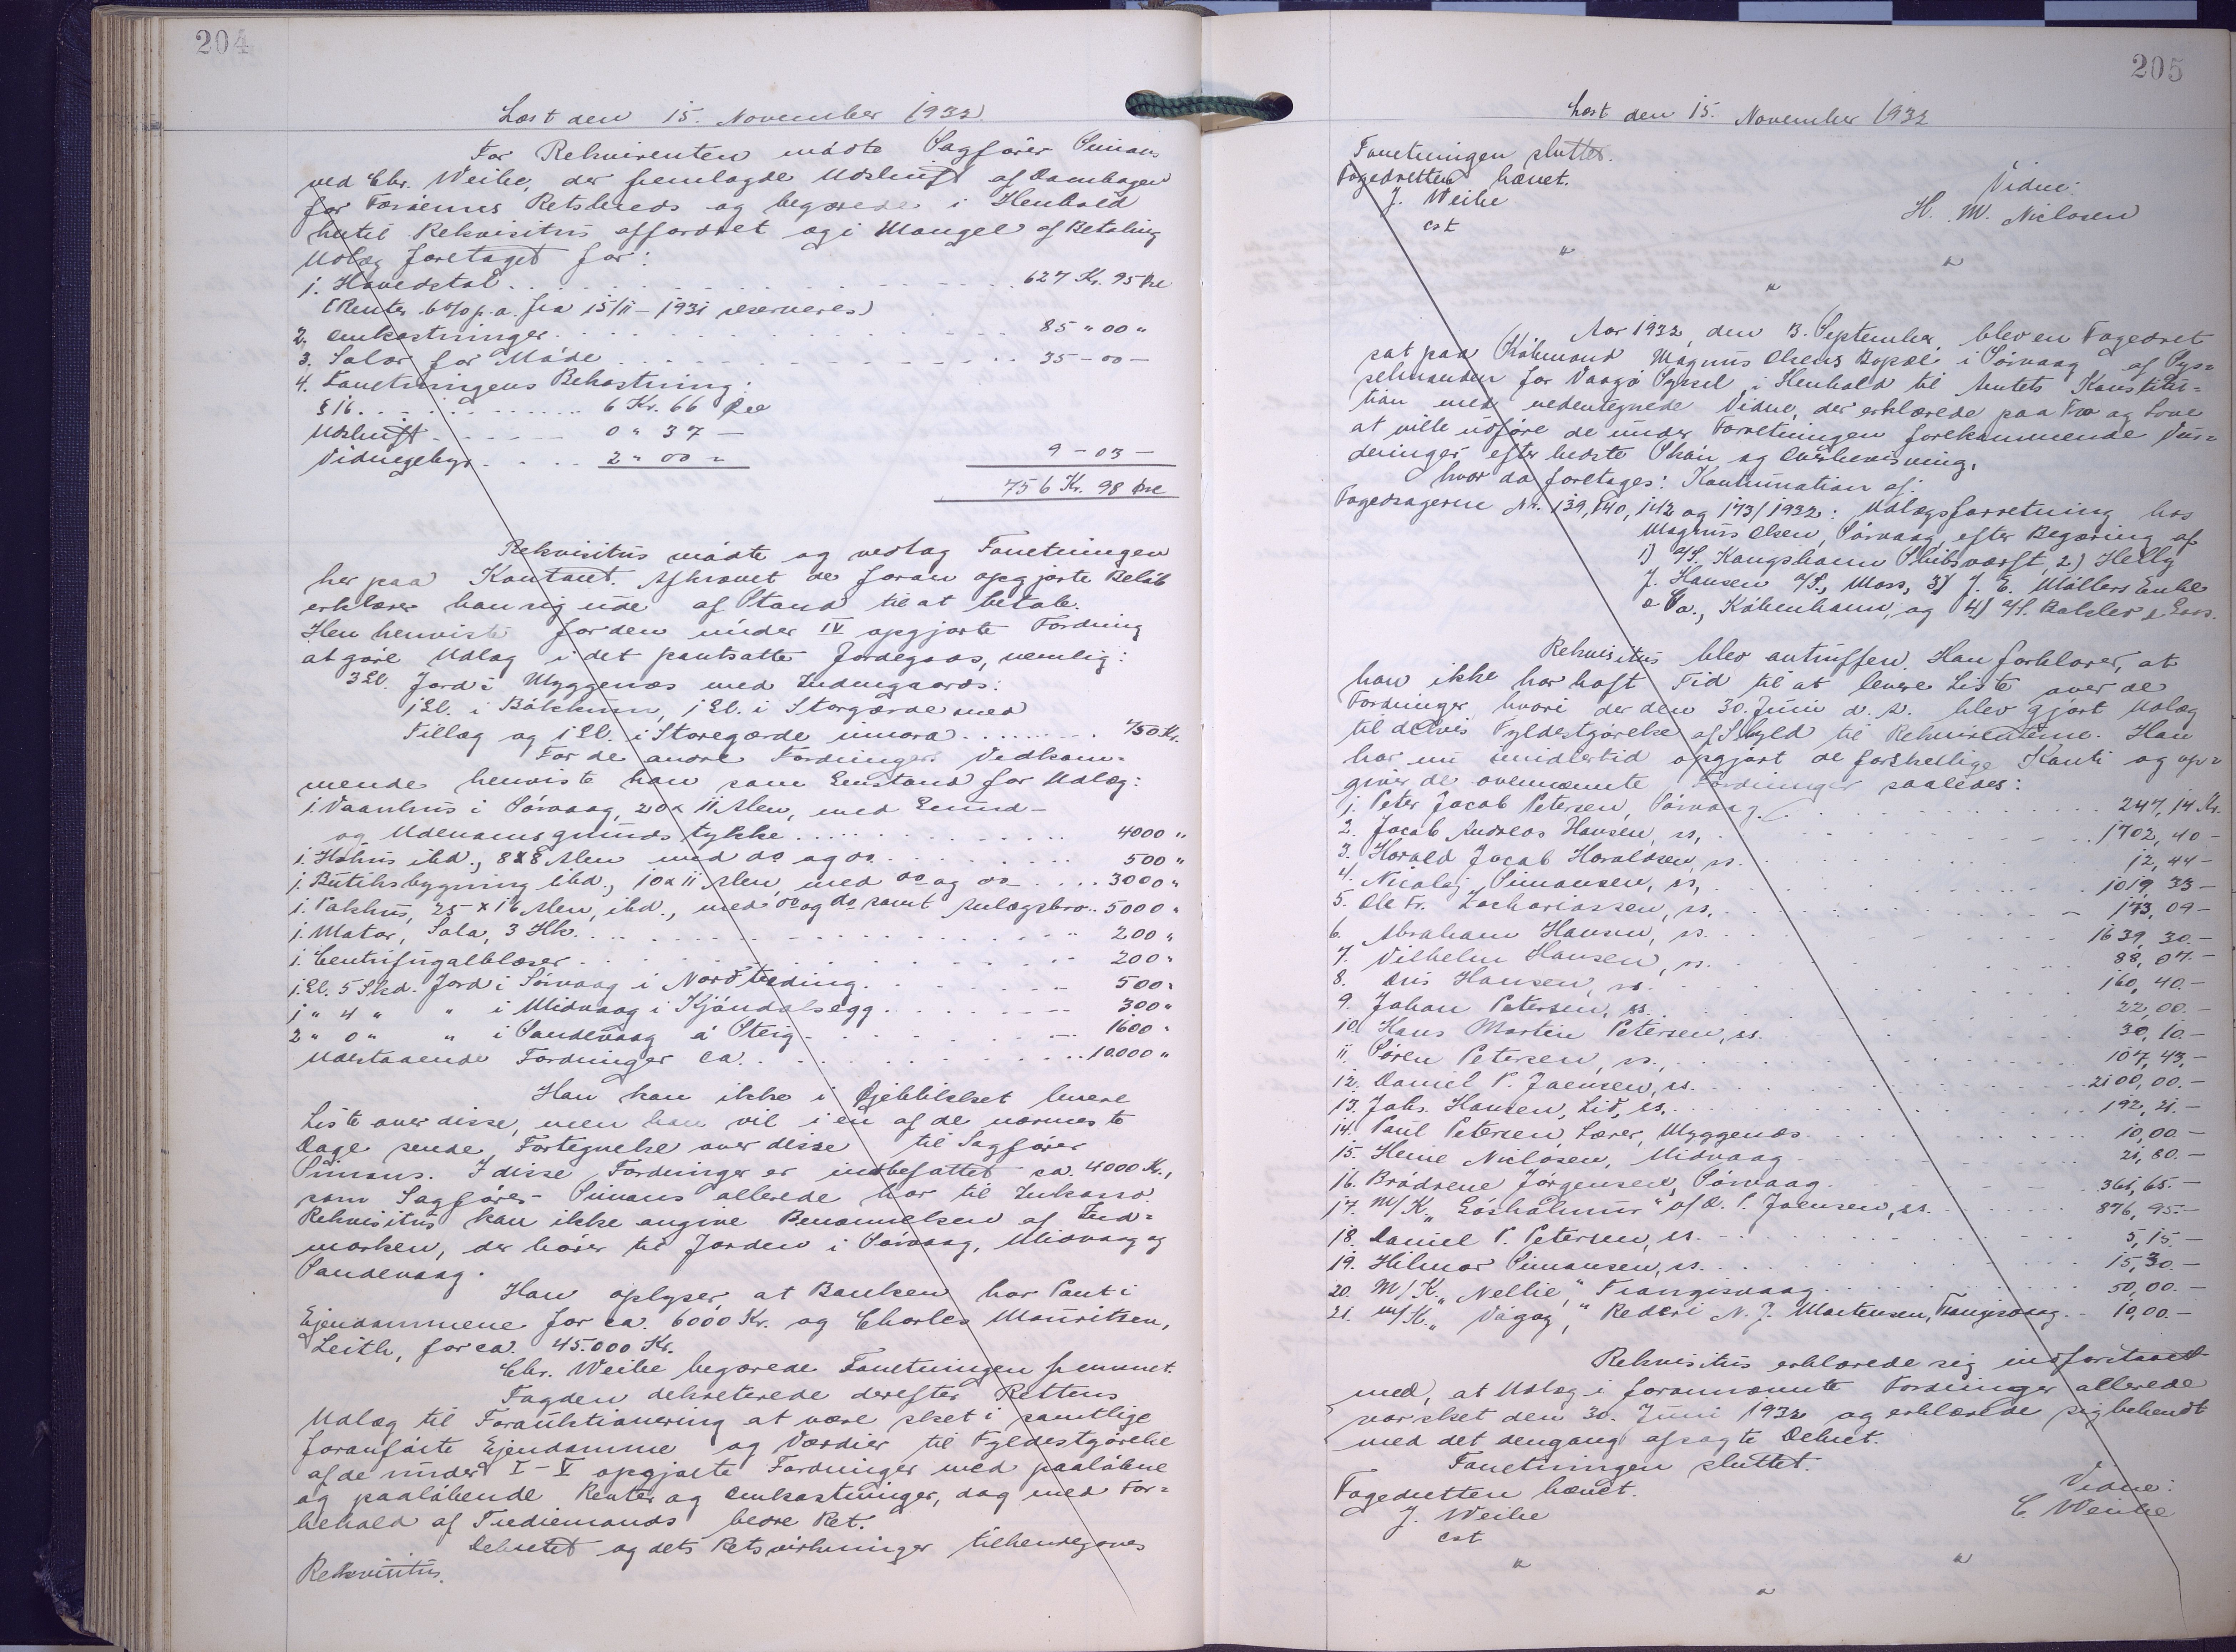 204
Læst den 15. November 1932.
For Rekvirenten mødte Sagfører Simans
ved Chr. Weihe, der fremlagde Udskrift af Dombogen
for Færøernes Retskreds og begærede i Henhold
hertil Rekvisitus affordret og i Mangel af Betaling
Udlæg foretaget for:
1. Hovedstol . . . 627 Kr. 95 Øre
(Renter 6% p.a. fra 15/11 - 1931 reserveres)
2. Omkostninger . . . 85 " 00 "
3. Salær for Møde . . . 35 - 00 -
4. Forretningens Bekostning:
§ 16 . . . 6 Kr. 66 Øre
Udskrift . . . 0 " 37 -
Vidnegebyr . . . 2 " 00 " 9 - 03 -
756 Kr. 98 Øre
Rekvisitus mødte og vedtog Forretningen
her paa Kontoret. Afkrævet de foran opgjorte Beløb
erklærer han sig ude af Stand til at betale.
Han henviste for den under IV opgjorte Fordring
at gøre Udlæg i det pantsatte Jordegods, nemlig:
3 Gl. Jord i Myggenæs med Indengaards:
1 Gl. i Bøkkum, 1 Gl. i Storgærde med
Tillæg og 1 Gl. i Storegærde innara . . . 750 Kr.
For de andre Fordringers Vedkom-
mende henviste han som Genstand for Udlæg:
1. Vaanhus i Sørvaag, 20 x 11 Alen, med Grund-
og Udenomsgrundstykke . . . 4000 "
1. Høhus ibd., 8 x 8 Alen med do og do . . . 500 "
1. Butiksbygning ibd., 10 x 11 Alen, med do og do . . . 3000 "
1. Pakhus, 25 x 16 Alen, ibd., med do og do samt Anlægsbro . . 5000 "
1. Motor, Sola, 3 Hk. . . . 200 "
1. Centrifugalblæser . . . 200 "
1 Gl. 5 Skd. Jord i Sørvaag i Nordtreding . . . 500 "
1 " 4 " " i Midvaag i Kjóndalsegg . . . 300 "
2 " 0 " " i Sandevaag á Steig . . . 1600 "
Udestaaende Fordringer ca. . . . 10.000 "
Han kan ikke i Øjeblikket levere
Liste over disse, men han vil i en af de nærmeste
Dage sende Fortegnelse over disse til Sagfører
Simans. I disse Fordringer er indbefattet ca. 4000 Kr.,
som Sagfører Simans allerede har til Inkasso.
Rekvisitus kan ikke angive Benævnelsen af Ind-
marken, der hører til Jorden i Sørvaag, Midvaag og
Sandevaag.
Han oplyser at Banken har Pant i
Ejendommene for ca. 6000 Kr. og Charles Mouritzen,
Leith, for ca. 45.000 Kr.
Chr. Weihe begærede Forretningen fremmet.
Fogden dekreterede derefter Rettens
Udlæg til Forauktionering at være sket i samtlige
foranførte Ejendomme og Værdier til Fyldestgørelse
af de under I - V opgjorte Fordringer med paaløbne
og paaløbende Renter og Omkostninger, dog med For-
behold af Trediemands bedre Ret.
Dekretet og dets Retsvirkninger tilkendegaves
Rekvisitus.
205
Læst den 15. November 1932
Forretningen sluttet.
Fogedretten hævet.
J. Weihe
cst
Vidne:
H. M. Niclasen
" " "
Aar 1932, den 13. September, blev en Fogedret
sat paa Købmand Magnus Olsens Bopæl i Sørvaag af Sys-
selmanden for Vaagø Syssel i Henhold til Amtets Konstitu-
tion med nedentegnede Vidne, der erklærede paa Tro og Love
at ville udføre de under Forretningen forekommende Vur-
deringer efter bedste Skøn og Overbevisning,
hvor da foretages: Kontinuation af:
Fogedsagerne Nr. 139, 140, 142 og 173/1932: Udlægsforretning hos
Magnus Olsen, Sørvaag, efter Begæring af
1) A/S. Kongshavn Skibsværft, 2) Helly
J. Hansen A/S., Moss, 3) J. E. Møllers Enke
& Co., København, og 4) A/S. Balslev & Sons.
Rekvisitus blev antruffen. Han forklarer, at
han ikke har haft Tid til at levere Liste over de
Fordringer hvori der den 30. Juni d. A. blev gjort Udlæg
til delvis Fyldestgørelse af Skyld til Rekvirenterne. Han
har nu imidlertid opgjort de forskellige Konti og op-
giver de ovennævnte Fordringer saaledes:
1. Peter Jacob Petersen, Sørvaag . . . 247,14 Kr.
2. Jacob Andreas Hansen, ss, . . . 1702,40 -
3. Harald Jacob Haraldsen, ss. . . . 12,44 -
4. Nicolaj Simonsen, ss, . . . 1019,33 -
5. Ole Fr. Zachariassen, ss. . . . 173,09 -
6. Abraham Hansen, ss. . . . 1639,30. -
7. Vilhelm Hansen, ss. . . . 88,07. -
8. Hansen, ss. . . . 160,40. -
9. Johan Petersen, ss. . . . 22,00. -
10. Hans Martin Petersen, ss. . . . 30,10. -
11. Søren Petersen, ss., . . . 107,43, -
12. Daniel P. Joensen, ss. . . . 2100,00. -
13. Johs. Hansen, Lid, ss. . . . 192,21. -
14. Poul Petersen, Lærer, Myggenæs. . . . 10,00. -
15. Heine Niclasen, Midvaag . . . 21,80. -
16. Brødrene Jørgensen, Sørvaag . . . 361,65. -
17. M/K. „Gásholmur" af D. P. Joensen, ss. . . . 876,95. -
18. Daniel P. Petersen, ss. . . . 5,15. -
19. Hilmar Simonsen, ss. . . . 15,30. -
20. M/K. „Nellie," Trangisvaag . . . 50,00. -
21. M/K. „Vágoy," Rederi N. J. Mortensen, Trangisvaag . . 10,00. -
Rekvisitus erklærede sig indforstaaet
med, at Udlæg i forannævnte Fordringer allerede
var sket den 30. Juni 1932 og erklærede sig bekendt
med det dengang afsagte Dekret.
Forretningen sluttet.
Fogedretten hævet.
J. Weihe
cst
Vidne:
C. Weihe
" " "